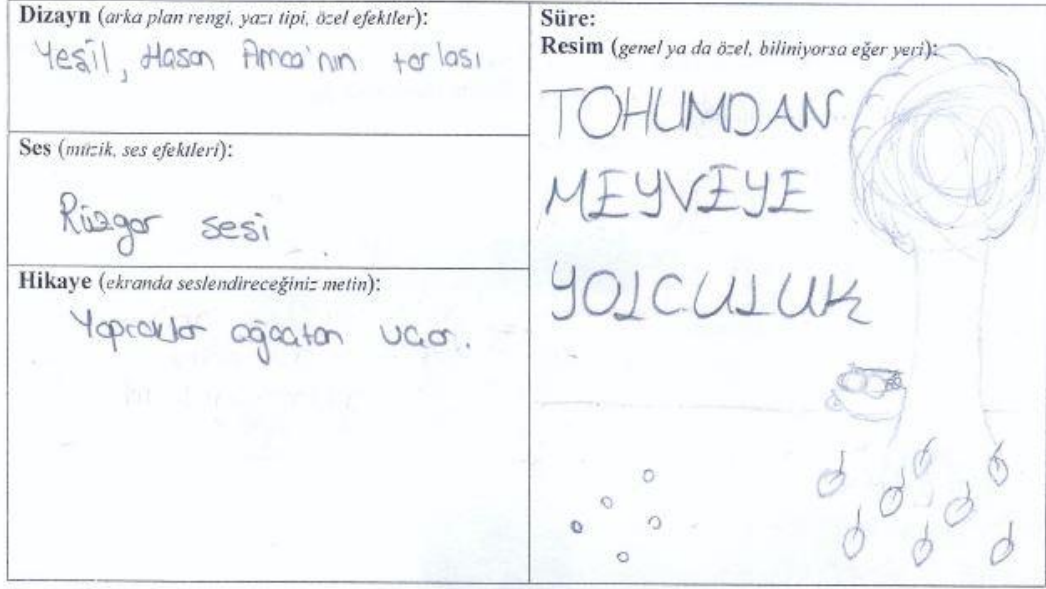 Dizayn (arka plan rengi, yazı tipi, özel efektler):
Yeşil, Hasan Amca'nın tarlası
Ses (müzik, ses efektleri):
Rüzgar sesi
Hikaye (ekranda seslendireceğiniz metin):
Yapraklar ağaçtan uçar.
Süre:
Resim (genel ya da özel, biliniyorsa eğer yeri):
TOHUMDAN
MEYVEYE
YOLCULUK